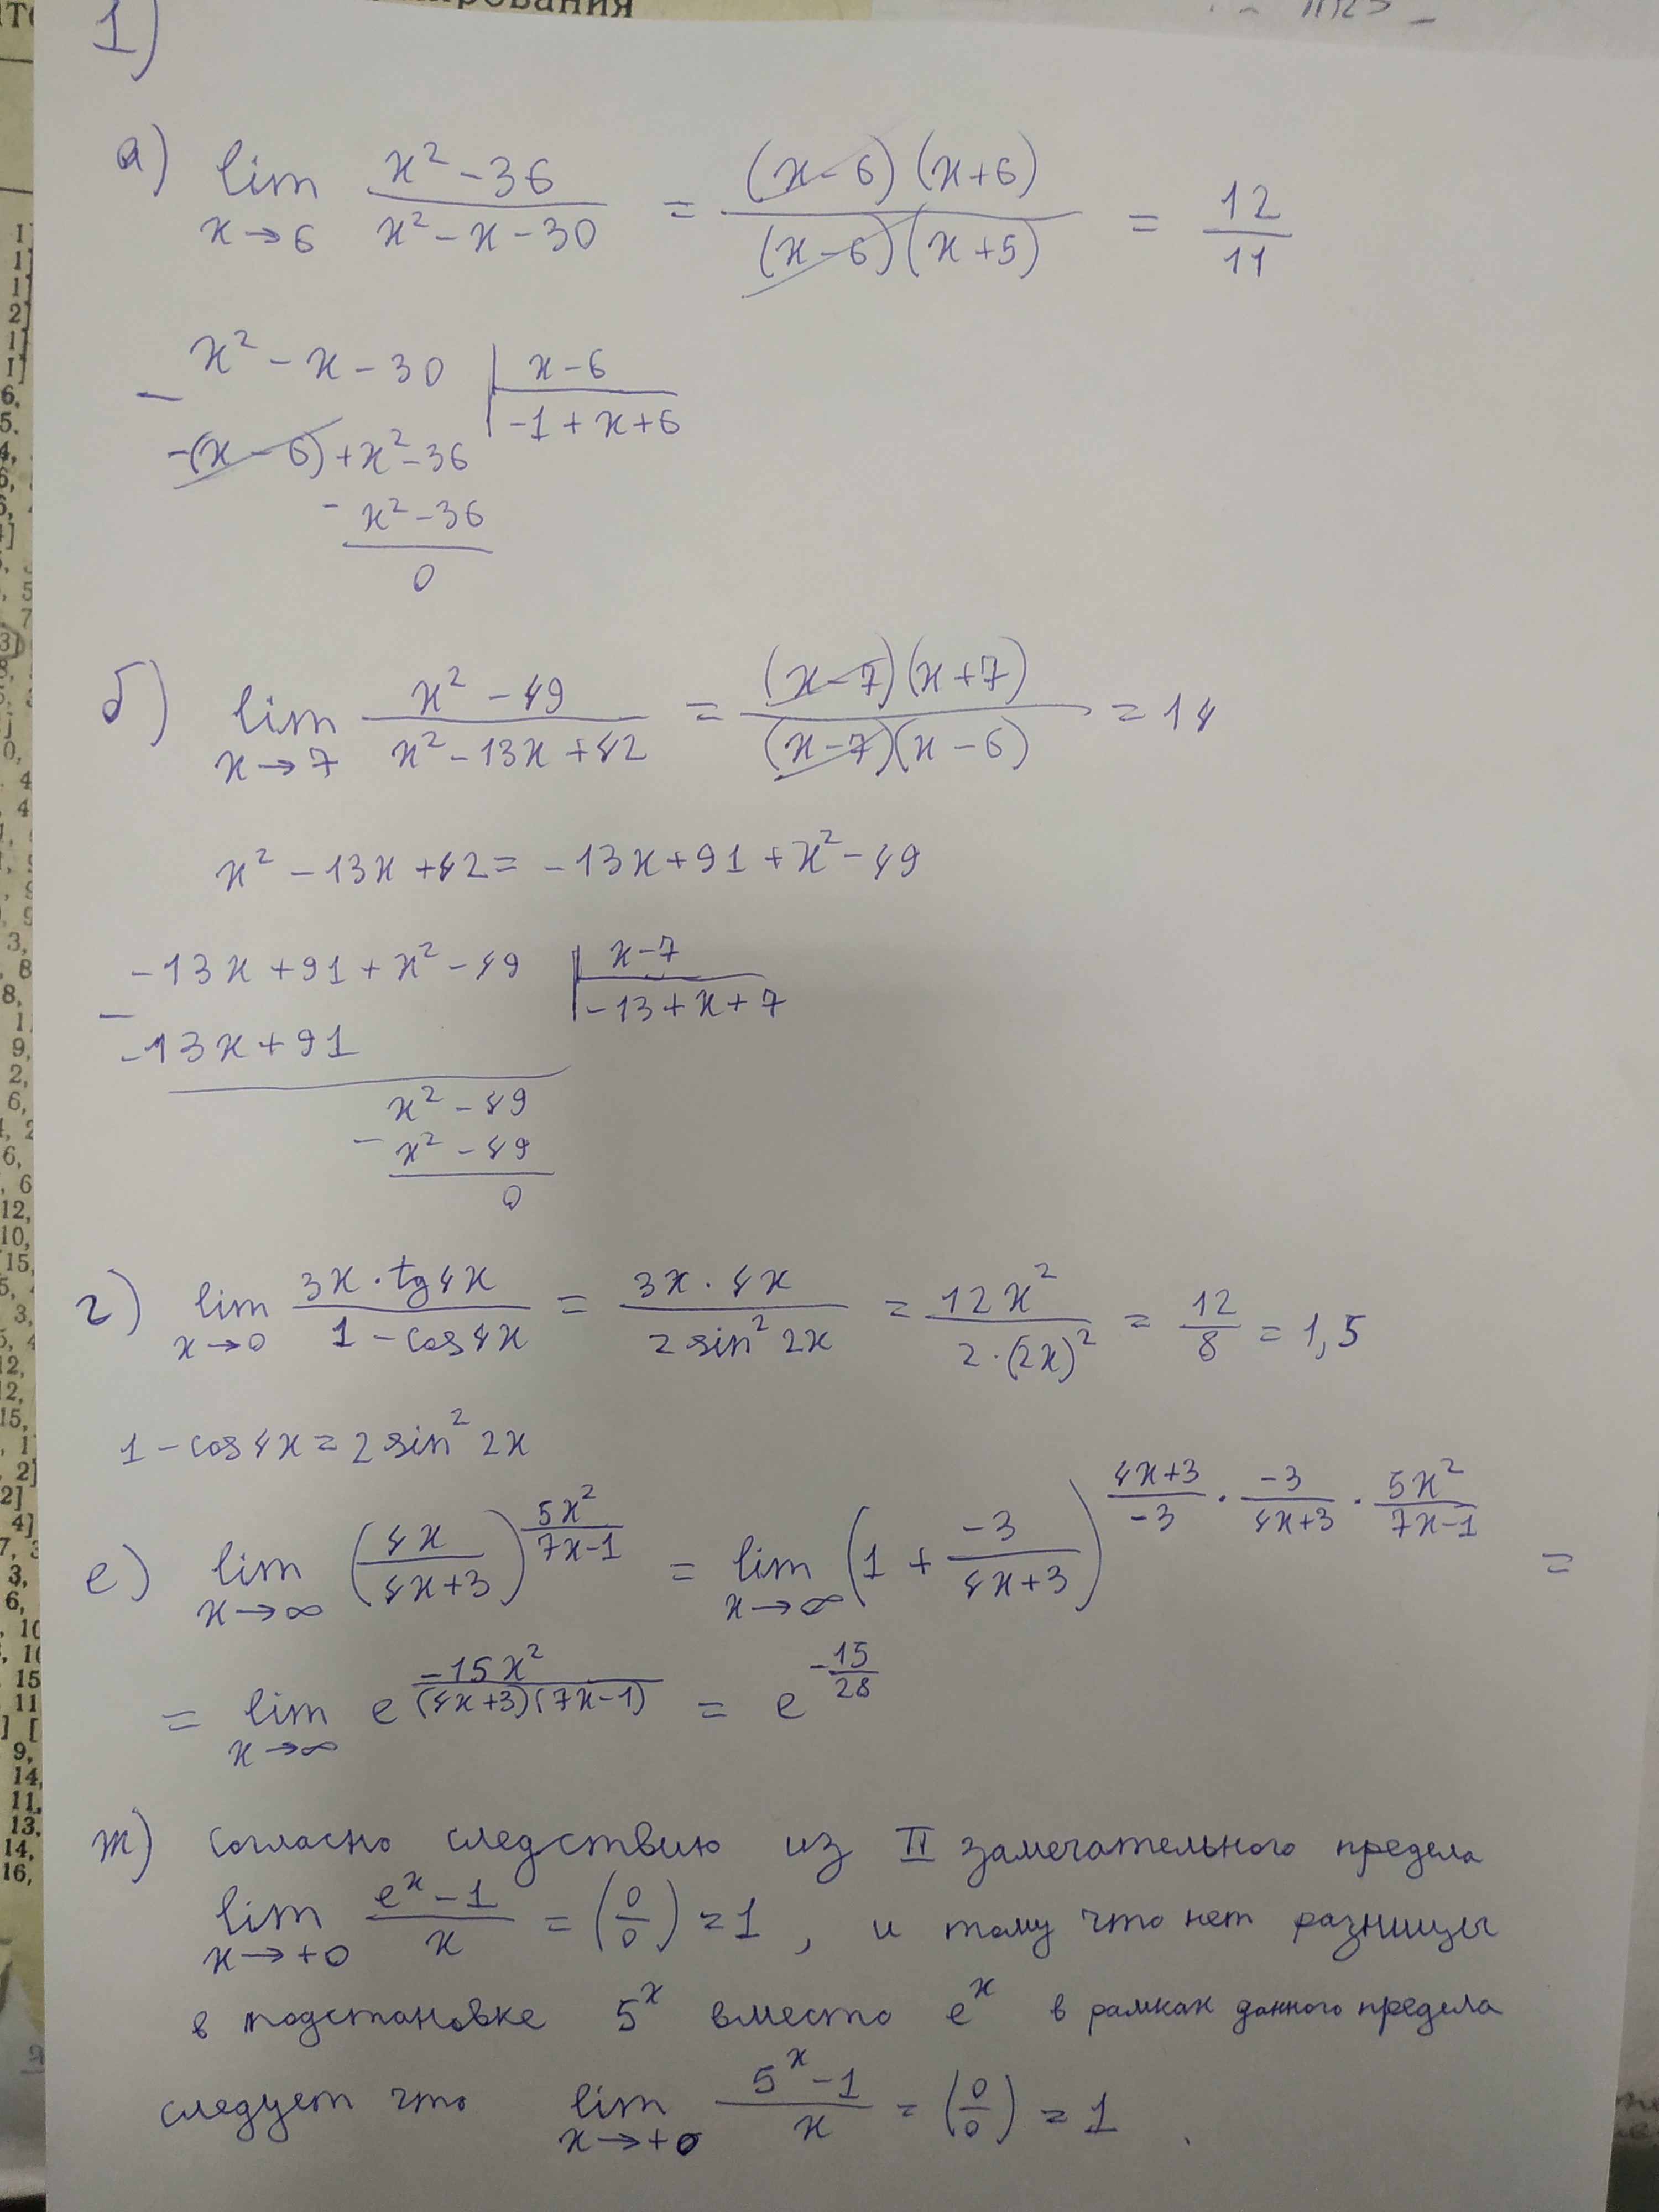 ирования
1)
а) lim x→6 (x² - 36)/(x² - x - 30) = ((x-6)(x+6))/((x-6)(x+5)) = 12/11
x² - x - 30 | x - 6
-(x - 6) + x² - 36 | -1 + x + 6
- x² - 36
0
б) lim x→7 (x² - 49)/(x² - 13x + 42) = ((x-7)(x+7))/((x-7)(x-6)) = 14
x² - 13x + 42 = -13x + 91 + x² - 49
-13x + 91 + x² - 49 | x - 7
-13x + 91 | -13 + x + 7
x² - 49
- x² - 49
0
г) lim x→0 (3x · tg4x)/(1 - cos4x) = (3x · 4x)/(2 sin² 2x) = 12x²/(2·(2x)²) = 12/8 = 1,5
1 - cos4x = 2 sin² 2x
е) lim x→∞ (4x/(4x+3))^(5x²/(7x-1)) = lim x→∞ (1 + -3/(4x+3))^((4x+3)/-3 · -3/(4x+3) · 5x²/(7x-1)) =
= lim x→∞ e^(-15x²/((4x+3)(7x-1))) = e^(-15/28)
ж) Согласно следствию из II замечательного предела
lim x→+0 (e^x - 1)/x = (0/0) = 1, и тому что нет разницы
в подстановке 5^x вместо e^x в рамках данного предела
следует что lim x→+0 (5^x - 1)/x = (0/0) = 1.